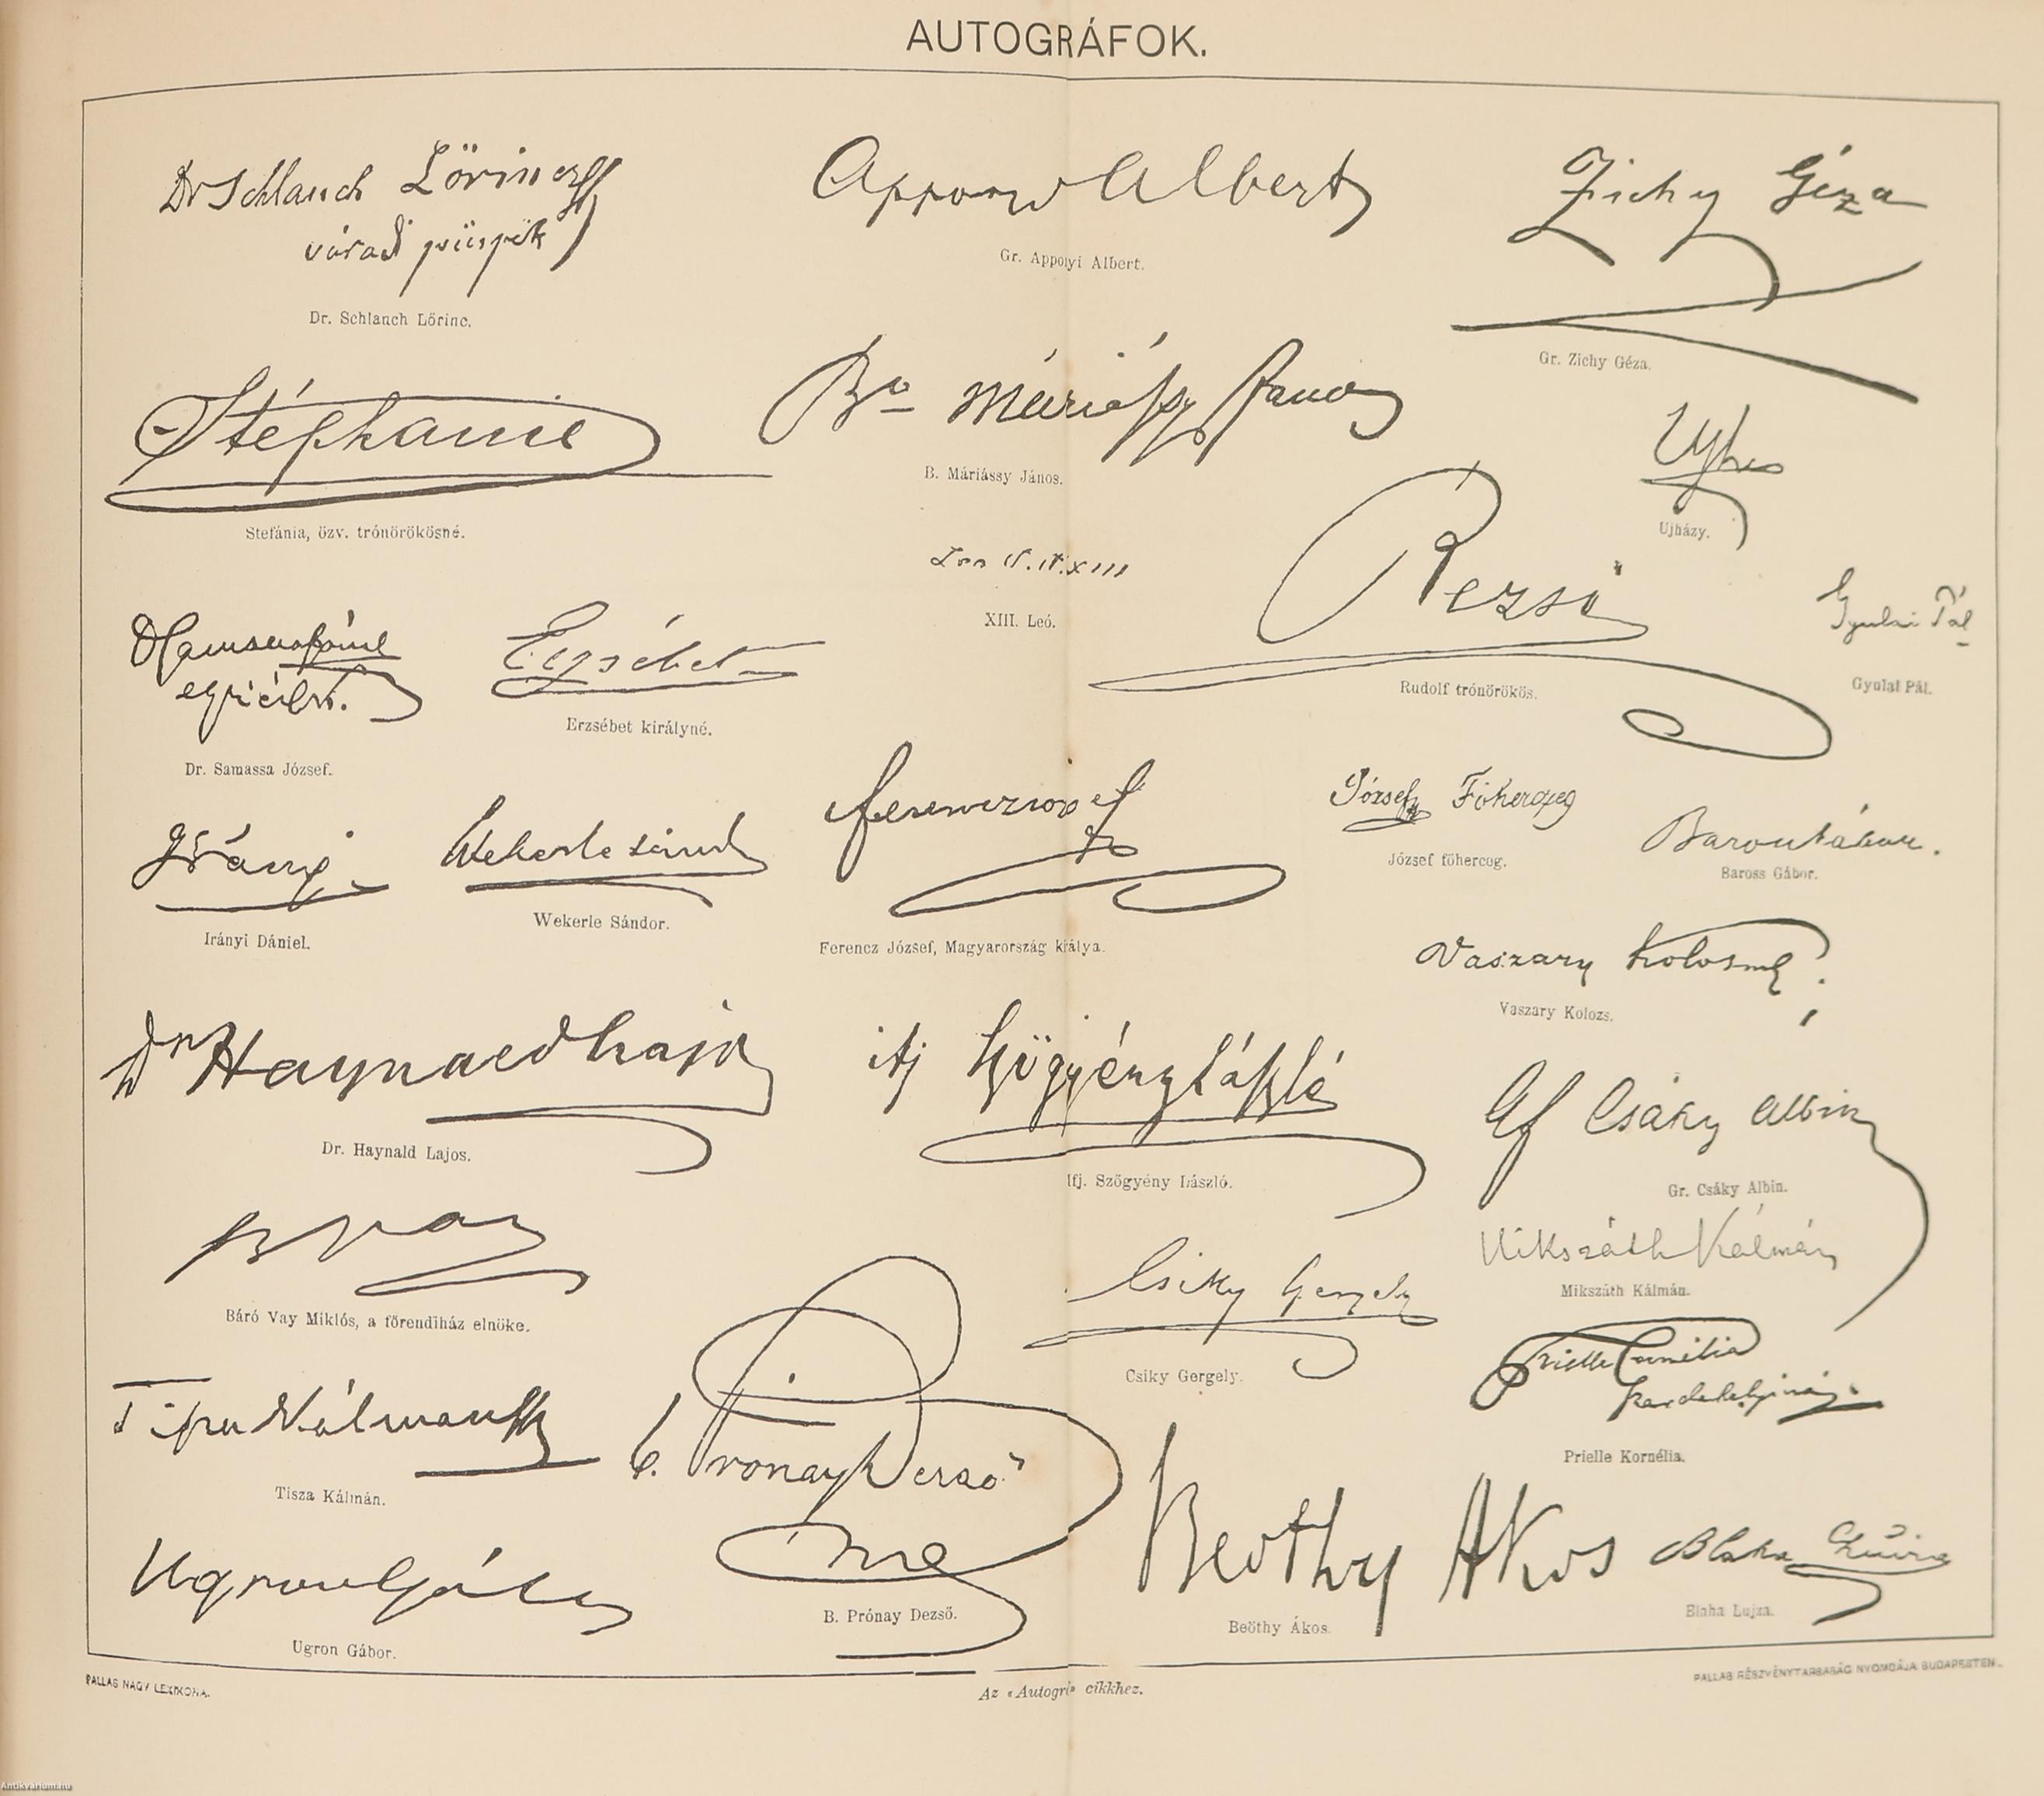 AUTOGRÁFOK.
Dr Schlauch Lőrincz
váradi püspök
Dr. Schlauch Lőrinc.
Apponyi Albert
Gr. Appolyi Albert.
Zichy Géza
Gr. Zichy Géza.
Stéphanie
Stefánia, özv. trónörökösné.
Br Máriássy János
B. Máriássy János.
Ujházy.
Leo P.P. XIII
XIII. Leó.
Rezső
Rudolf trónörökös.
Gyulai Pál
Gyulai Pál.
egri érsek.
Dr. Samassa József.
Erzsébet
Erzsébet királyné.
Irányi
Irányi Dániel.
Wekerle Sándor
Wekerle Sándor.
Ferencz József
Ferencz József, Magyarország királya.
József Főherczeg
József főherceg.
Baross Gábor.
Baross Gábor.
Vaszary Kolos
Vaszary Kolozs.
Dr Haynald Lajos
Dr. Haynald Lajos.
ifj Szögyény László
Ifj. Szőgyény László.
Gf Csáky Albin
Gr. Csáky Albin.
B Vay
Báró Vay Miklós, a főrendiház elnöke.
Csiky Gergely
Csiky Gergely.
Mikszáth Kálmán
Mikszáth Kálmán.
Prielle Cornélia
Prielle Kornélia.
Tisza Kálmán
Tisza Kálmán.
b. Prónay Dezső
B. Prónay Dezső.
Ugron Gábor
Ugron Gábor.
Beöthy Akos
Beöthy Ákos.
Blaha Lujza
Blaha Lujza.
PALLAS NAGY LEXIKONA.
Az «Autogrf» cikkhez.
PALLAS RÉSZVÉNYTARSASÁG NYOMDÁJA BUDAPESTEN.
Antikvarium.hu